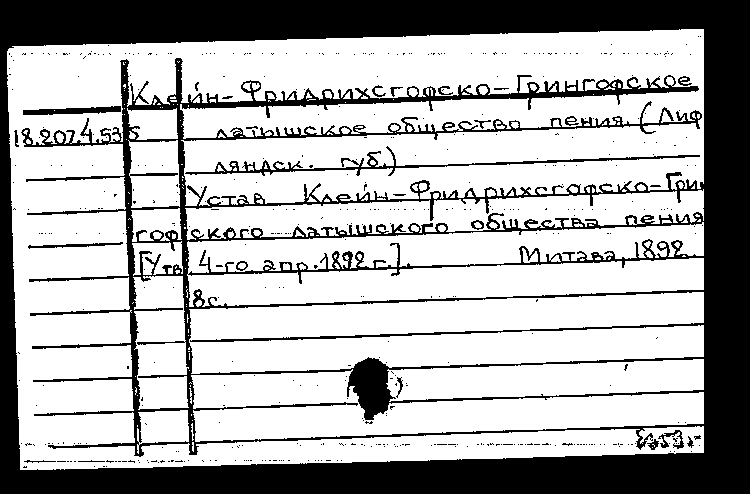 Клейн-Фридрихсгофско-Грингофское
18.207.4.535 латышское общество пения. (Лиф
ляндск. губ.)
Устав Клейн-Фридрихсгофско-Грин
гофского латышского общества пения
[Утв. 4-го апр. 1892 г.]. Митава, 1892.
8с.